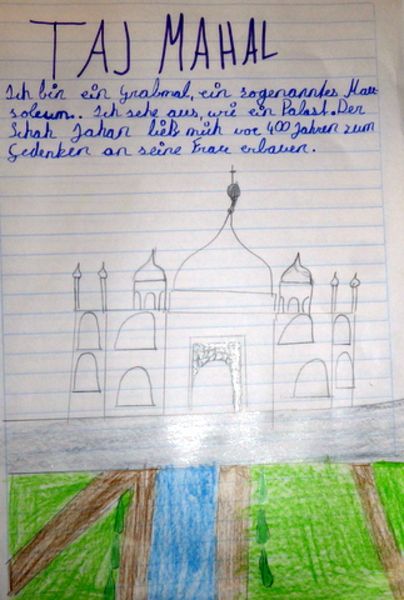 TAJ MAHAL
Ich bin ein Grabmal, ein sogenanntes Mau-
soleum. Ich sehe aus, wie ein Palast. Der
Schah Jahan ließ mich vor 400 Jahren zum
Gedenken an seine Frau erbauen.